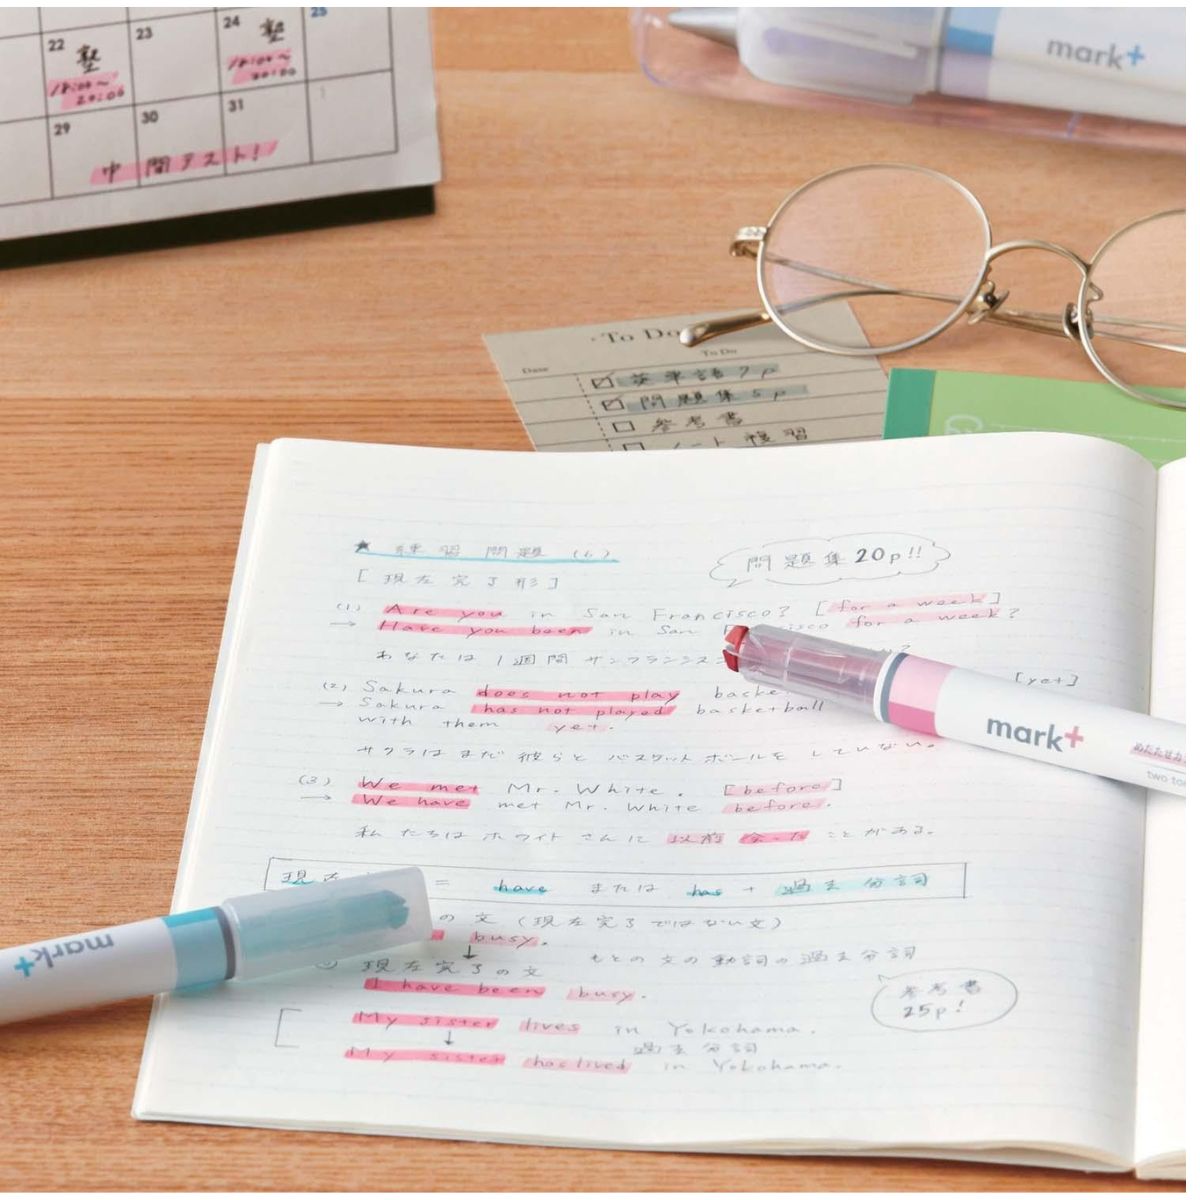 22 塾
23
24 塾
25
18:00〜
20:00
18:00〜
20:00
29
30
31
1
中間テスト!
mark+
・To Do
To Do
Date
英単語7p
問題集5p
参考書
ノート復習
★ 練習問題 (6)
問題集20p!!
[現在完了形]
(1) Are you in San Francisco? [for a week]
→ Have you been in San for a week?
あなたは1週間サンフランシス
[yet]
(2) Sakura does not play
→ Sakura has not played basketball
with them yet.
サクラはまだ彼らとバスケットボールをしていない。
mark+
two to
(3) We met Mr. White. [before]
→ We have met Mr. White before.
私たちはホワイトさんに以前会ったことがある。
= have または has + 過去分詞
の文(現在完了ではない文)
busy.
↓ もとの文の動詞の過去分詞
現在完了の文
I have been busy.
参考書
25p!
mark+
My sister lives in Yokohama.
↓ 過去分詞
My sister has lived in Yokohama.